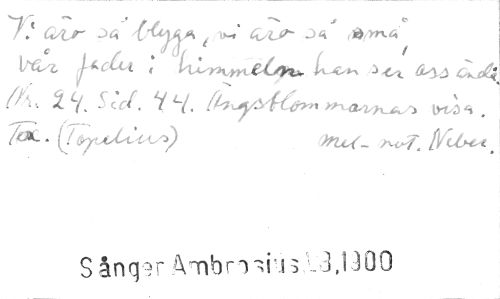 Vi äro så blyga, vi äro så små,
vår fader i himmelen han ser oss ändå.
Nr. 24. Sid. 44. Ängsblommornas visa.
Tex. (Topelius) mel- not. Weber.
Sånger Ambrosius, 1900